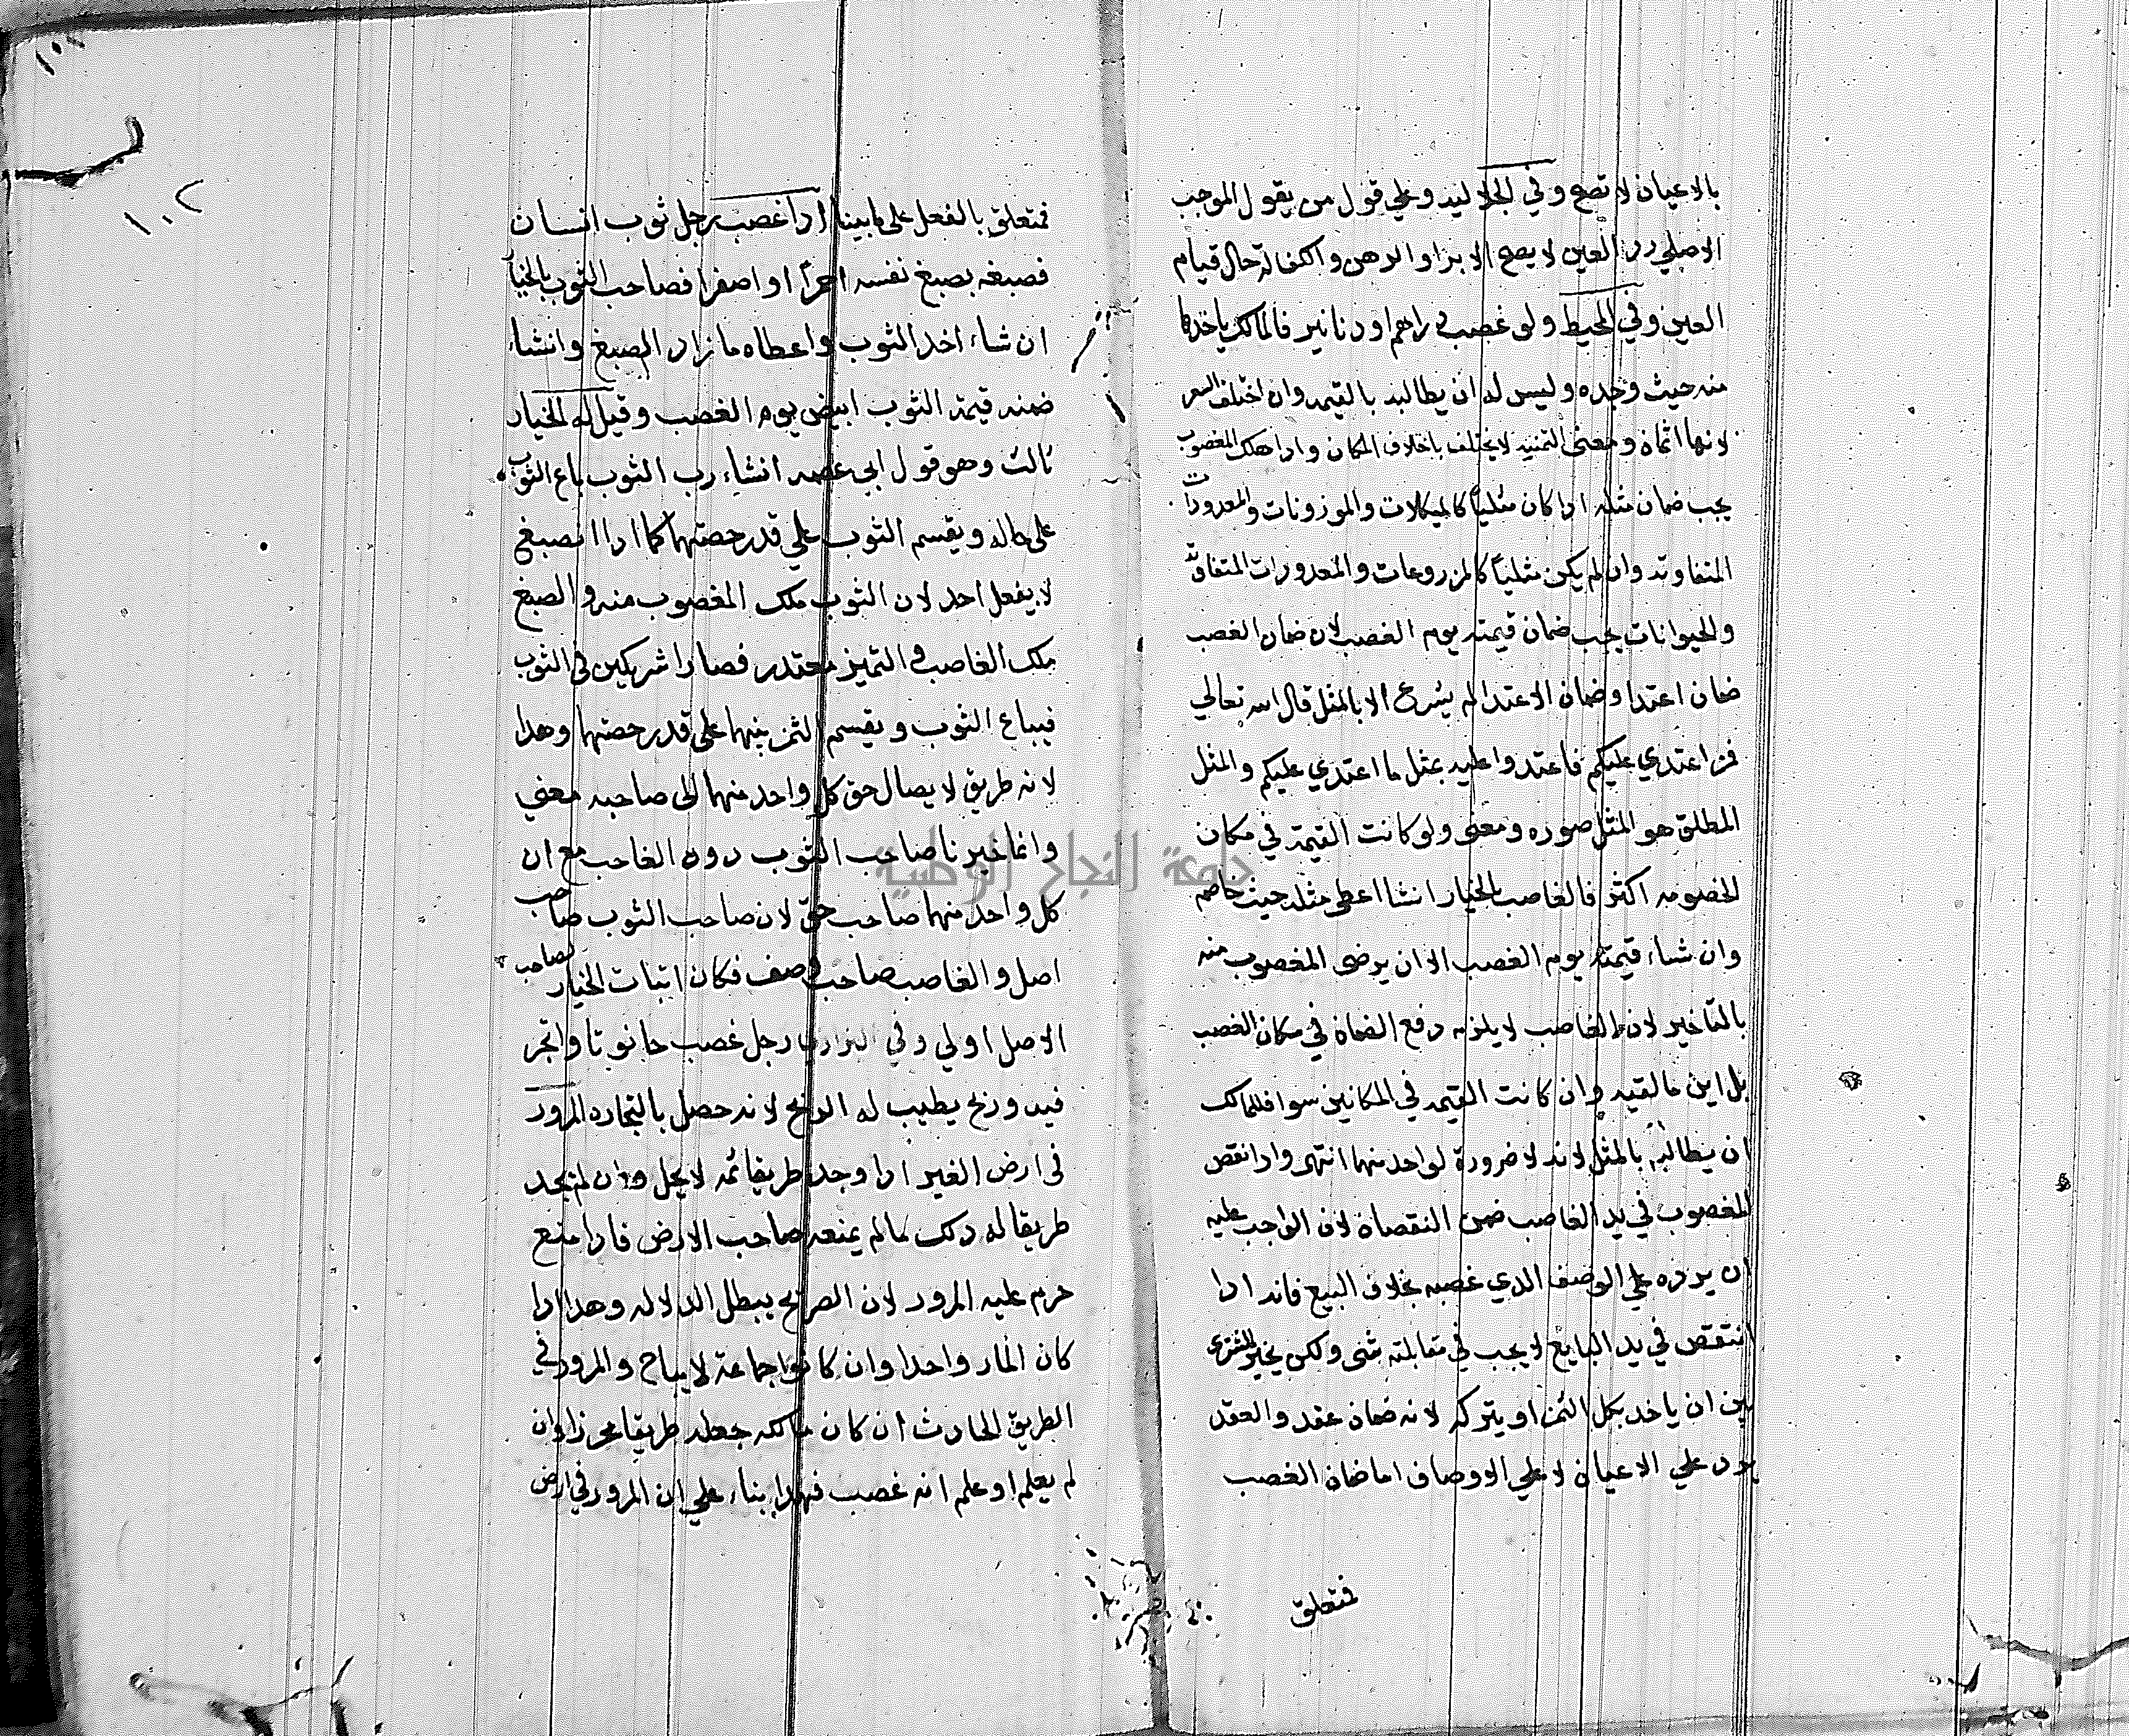 بالاعيان لا تصح وفي الجلاليه وعلي قول من يقول الموجب
الاصلي رد العين لا يصح الابرا والرهن والكفالة حال قيام
العين وفي المحيط ولو غصب دراهم او دنانير فالمالك ياخذها
منه حيث وجده وليس له ان يطالبه بالقيمه وان اختلف السعر
لانها اثمان ومعنى الثمنيه لا يختلف باختلاف المكان وادا هلك المغصوب
يجب ضمان مثله ادا كان مثلياً كالمكيلات والموزونات والمعدودات
المتفاوته وان لم يكن مثلياً كالمزروعات والمعدودات المتفاوته
والحيوانات يجب ضمان قيمته يوم الغصب لان ضمان الغصب
ضمان اعتدا وضمان الاعتدا لم يشرع الا بالمثل قال الله تعالي
فمن اعتدي عليكم فاعتدوا عليه بمثل ما اعتدي عليكم والمثل
المطلق هو المثل صوره ومعنى ولو كانت القيمة في مكان
الخصومه اكثر فالغاصب بالخيار انشا اعطى مثله حيث خاصم
وان شاء قيمته يوم الغصب الا ان يرضى المغصوب منه
بالتاخير لان الغاصب لا يلزمه دفع الضمان في مكان الغصب
بل اين ما لقيه وان كانت القيمه في المكانين سوا فللمالك
ان يطالبه بالمثل لانه لا ضرورة لواحد منهما انتهى وادا نقص
المغصوب في يد الغاصب ضمن النقصان لان الواجب عليه
ان يرده علي الوصف الدي غصبه بخلاف البيع فانه ادا
انتقص في يد البايع لا يجب في مقابلته شى ولكن يخير المشتري
بين ان ياخد بكل الثمن او يتركه لانه ضمان عقد والعقد
يرد علي الاعيان لا علي الاوصاف اما ضمان الغصب
فتعلق
١٠٢
فمتعلق بالفعل على ما بينا ادا غصب رجل ثوب انسان
فصبغه بصبغ نفسه احمراً او اصفرا فصاحب الثوب بالخيار
ان شاء اخد الثوب واعطاه ما زاد الصبغ وانشاء
ضمنه قيمة الثوب ابيض يوم الغصب وقيل له الخيار
ثالث وهو قول ابي عصمه انشاء رب الثوب باع الثوب
على حاله ويقسم الثوب علي قدر حصتهما كما ادا انصبغ
لا بفعل احد لان الثوب ملك المغصوب منه والصبغ
ملك الغاصب والتميز معتدر فصارا شريكين في الثوب
فيباع الثوب ويقسم الثمن بينهما على قدر حصتهما وهدا
لانه طريق لايصال حق كل واحد منهما الى صاحبه معني
وانما خيرنا صاحب الثوب دون الغاصب مع ان
كل واحد منهما صاحب حق لان صاحب الثوب صاحب
اصل والغاصب صاحب وصف فكان اثبات الخيار لصاحب
الاصل اولي وفي البزازيه رجل غصب حانوتا واتجر
فيه وربح يطيب له الربح لانه حصل بالتجاره المرور
في ارض الغير ادا وجد طريقا ثمه لا يحل وان لم يجد
طريقا له دلك ما لم يمنعه صاحب الارض فادا منع
حرم عليه المرور لان الصريح يبطل الدلاله وهدا ادا
كان المار واحدا وان كانوا جماعة لا يباح والمرور في
الطريق الحادث ان كان مالكه جعله طريقا وان
لم يعلم او علم انه غصب فهدا بناء علي ان المرور في ارض
جامعة النجاح الوطنية